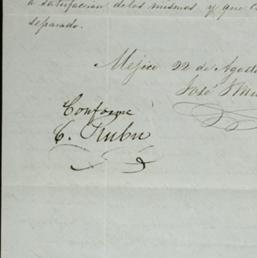 a satisfaccion de los mismos y que
separado.
Mejico 22 de Agosto
José
Conforme
C. Rubu